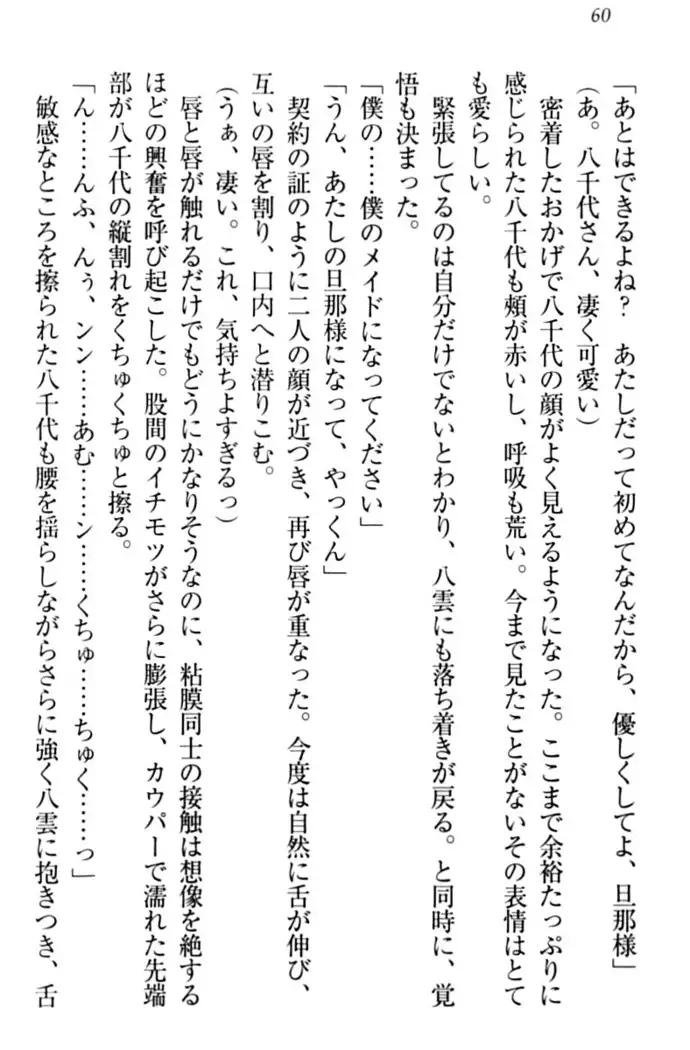 60
「あとはできるよね？　あたしだって初めてなんだから、優しくしてよ、旦那様」
（あ。八千代さん、凄く可愛い）
密着したおかげで八千代の顔がよく見えるようになった。ここまで余裕たっぷりに
感じられた八千代も頰が赤いし、呼吸も荒い。今まで見たことがないその表情はとて
も愛らしい。
緊張してるのは自分だけでないとわかり、八雲にも落ち着きが戻る。と同時に、覚
悟も決まった。
「僕の……僕のメイドになってください」
「うん、あたしの旦那様になって、やっくん」
契約の証のように二人の顔が近づき、再び唇が重なった。今度は自然に舌が伸び、
互いの唇を割り、口内へと潜りこむ。
（うぁ、凄い。これ、気持ちよすぎるっ）
唇と唇が触れるだけでもどうにかなりそうなのに、粘膜同士の接触は想像を絶する
ほどの興奮を呼び起こした。股間のイチモツがさらに膨張し、カウパーで濡れた先端
部が八千代の縦割れをくちゅくちゅと擦る。
「ん……んふ、んぅ、ンン……あむ……ン……くちゅ……ちゅく……っ」
敏感なところを擦られた八千代も腰を揺らしながらさらに強く八雲に抱きつき、舌